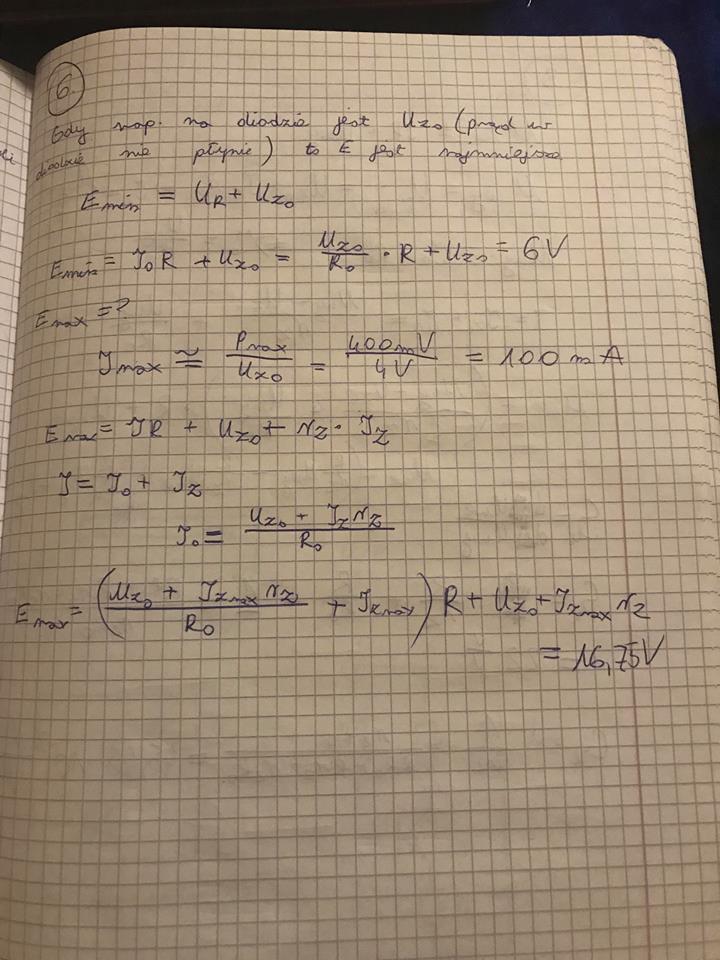 6.
Gdy nap. na diodzie jest Uz₀ (prąd w
diodzie nie płynie) to E jest najmniejsze
E_min = U_R + Uz₀
E_min = I₀R + Uz₀ = Uz₀/R₀ · R + Uz₀ = 6V
E_max = ?
I_max ≅ P_max/Uz₀ = 400mV/4V = 100 mA
E_max = IR + Uz₀ + r_z · I_z
I = I₀ + I_z
I₀ = (Uz₀ + I_z r_z)/R₀
E_max = ((Uz₀ + I_zmax r_z)/R₀ + I_zmax) R + Uz₀ + I_zmax r_z
= 16,75V